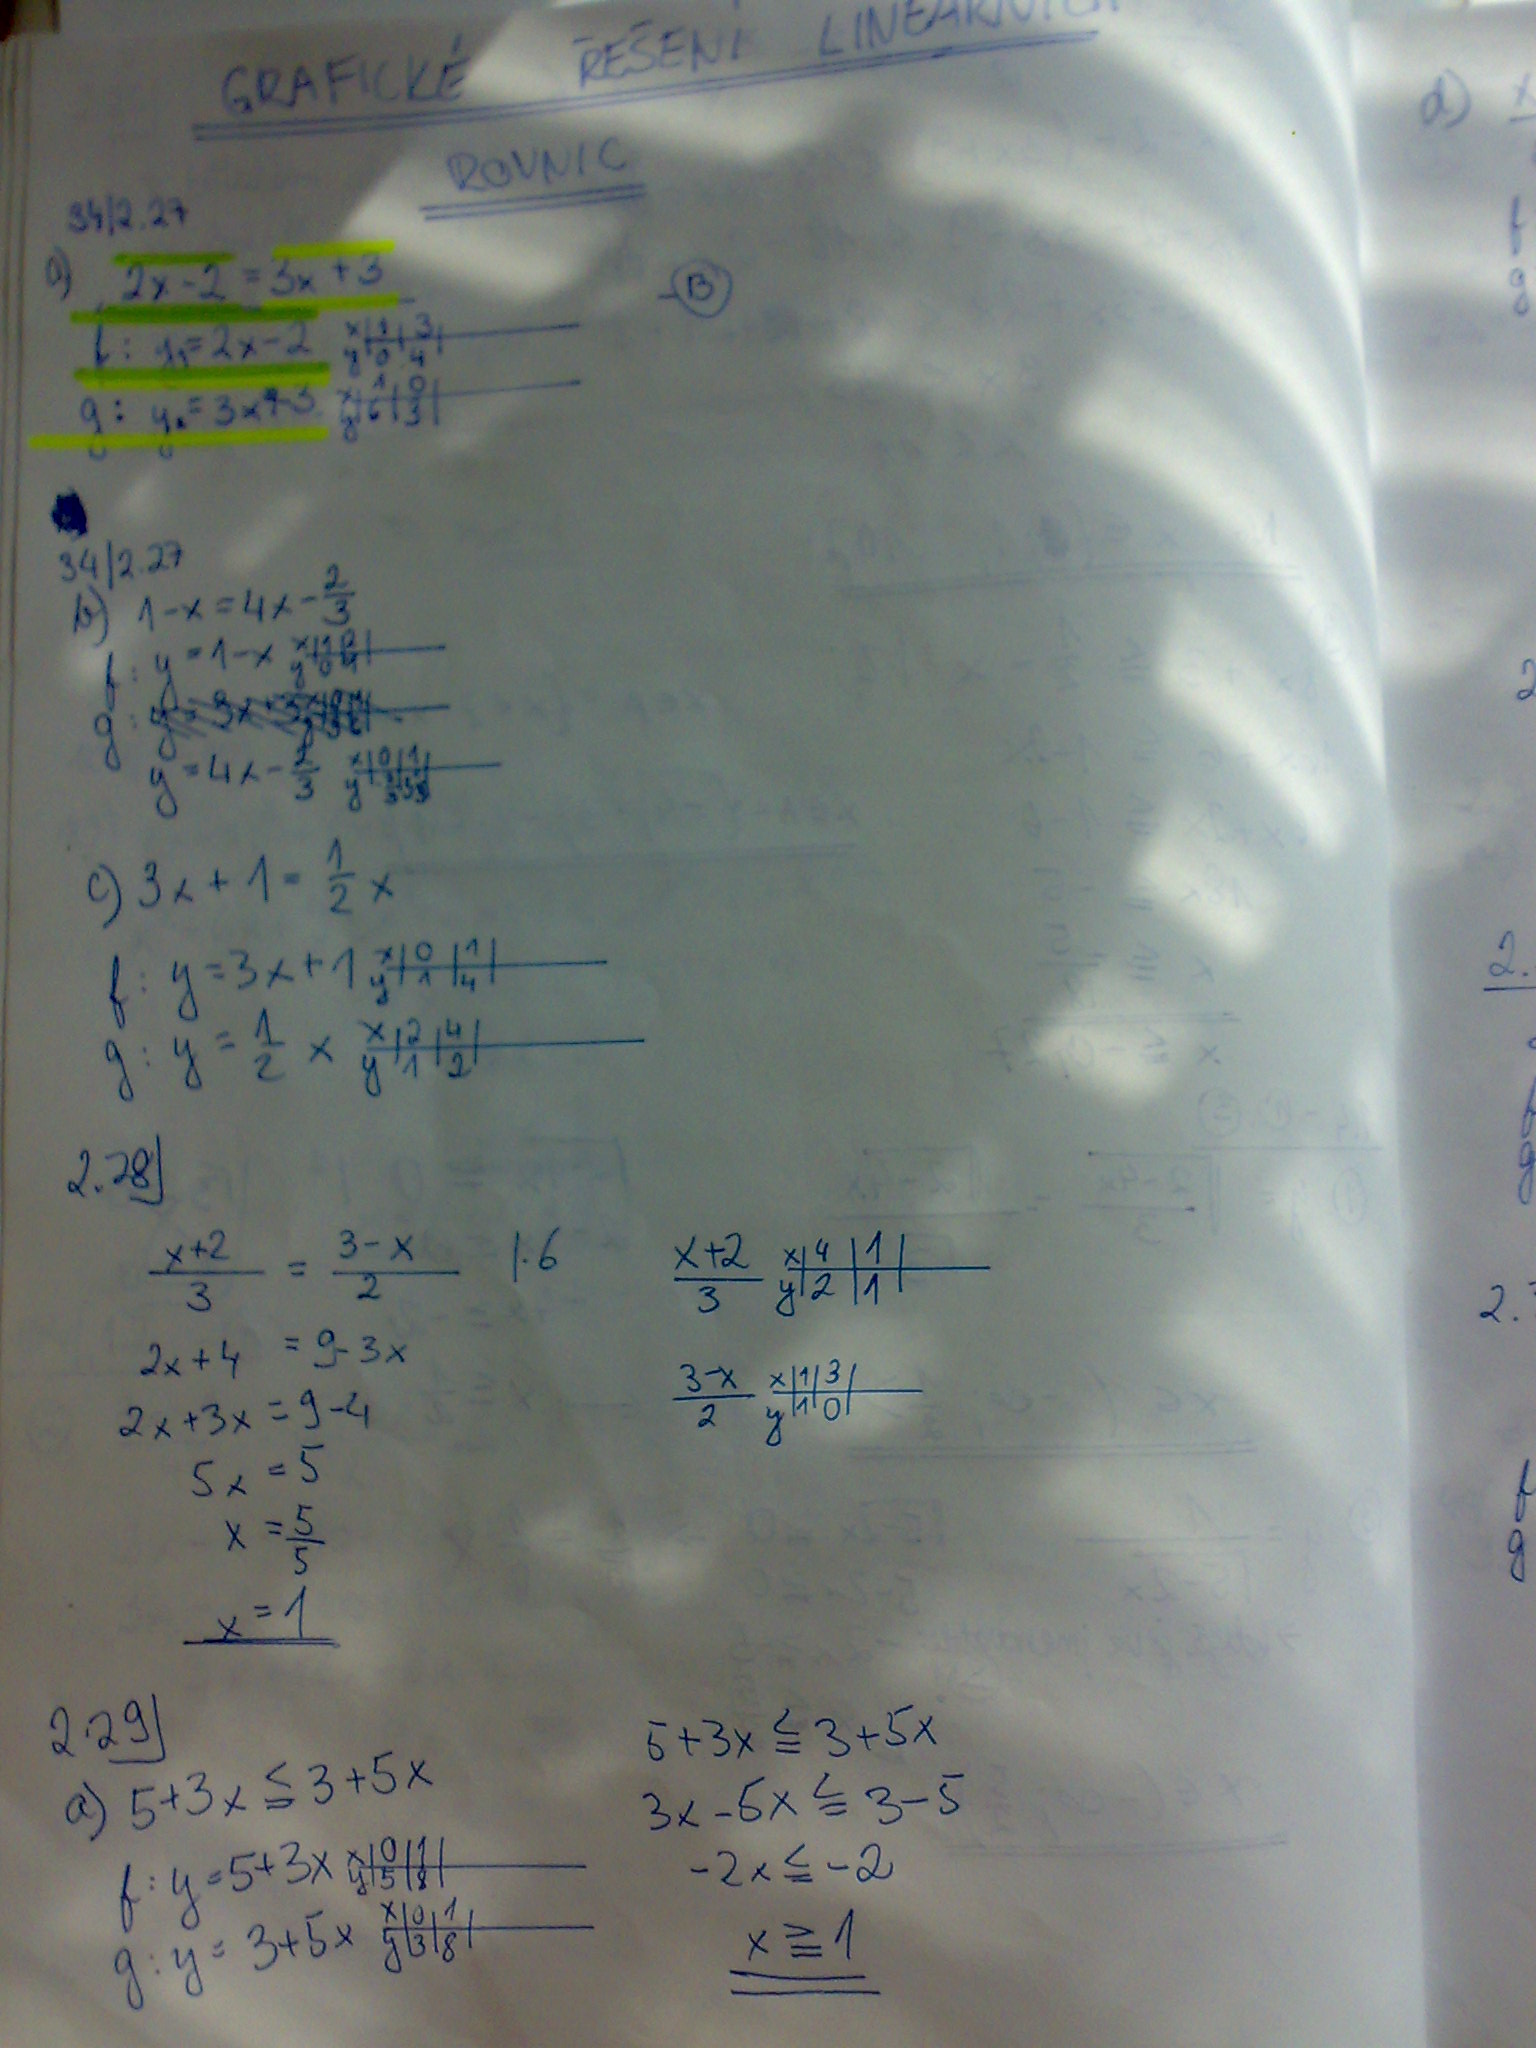 GRAFICKÉ ŘEŠENÍ LINEÁRNÍCH
ROVNIC
34/2.27
a) 2x-2 = 3x+3
f: y₁=2x-2 x|1|3| y|0|4|
g: y₂=3x+3 x|1|0| y|6|3|
B
34/2.27
b) 1-x=4x-2/3
f: y=1-x
g:
y=4x-2/3
c) 3x+1=1/2 x
f: y=3x+1 x|0|1| y|1|4|
g: y=1/2 x x|2|4| y|1|2|
2.28
(x+2)/3 = (3-x)/2 |·6
2x+4 = 9-3x
2x+3x = 9-4
5x = 5
x = 5/5
x = 1
(x+2)/3 x|4|1| y|2|1|
(3-x)/2 x|1|3| y|1|0|
2.29
a) 5+3x ≦ 3+5x
f: y=5+3x x|0|1| y|5|8|
g: y=3+5x x|0|1| y|3|8|
5+3x ≦ 3+5x
3x-5x ≦ 3-5
-2x ≦ -2
x ≧ 1
d)
f
g